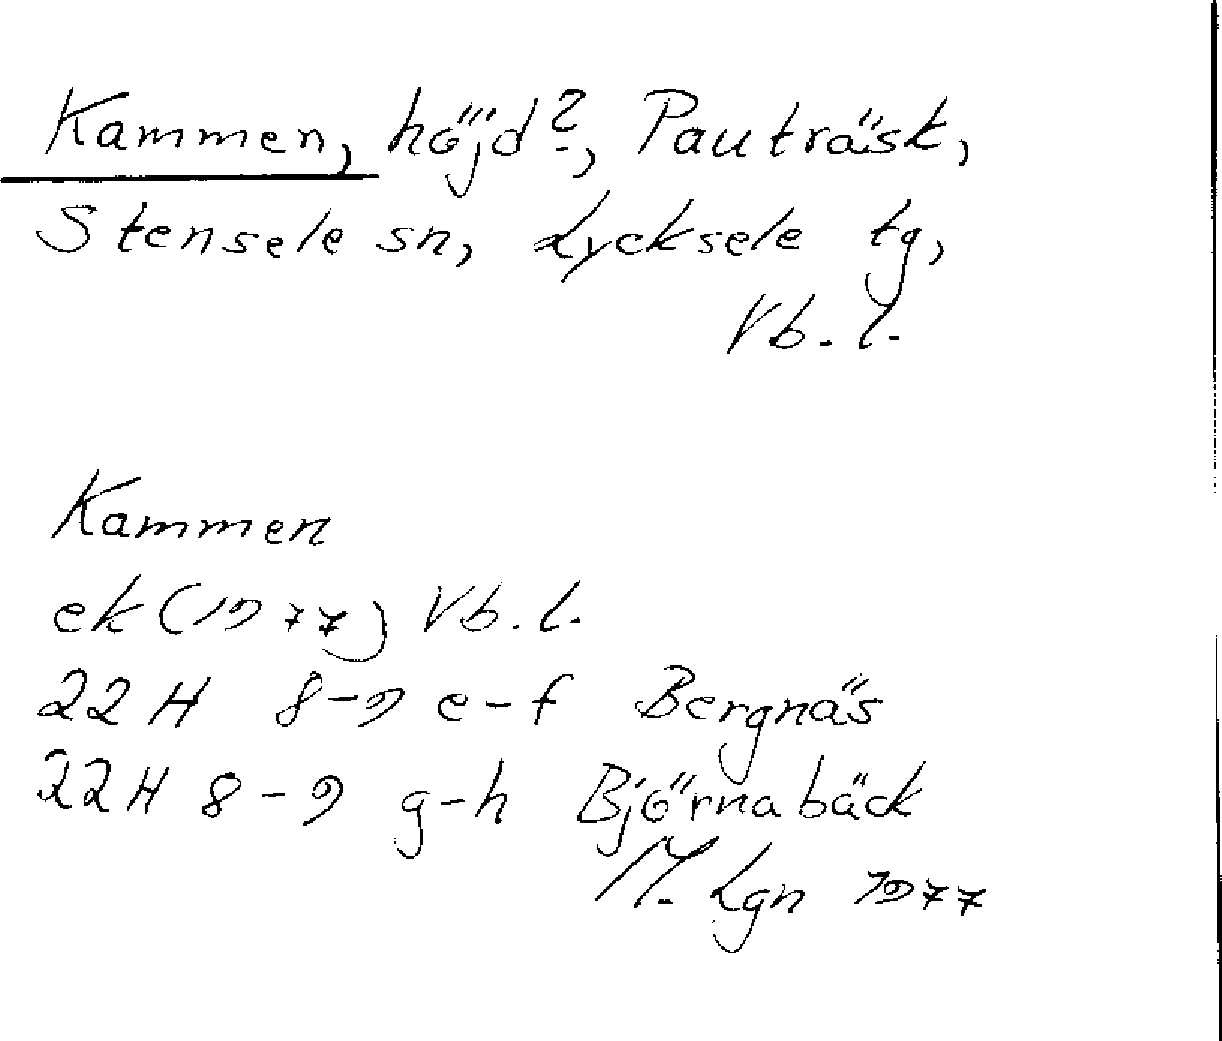 Kammen, höjd?, Pauträsk,
Stensele sn, Lycksele tg,
Vb. l.
Kammen
ek (1977) Vb. l.
22 H 8-9 e-f Bergnäs
22 H 8-9 g-h Björnabäck
M. Lgn 1977